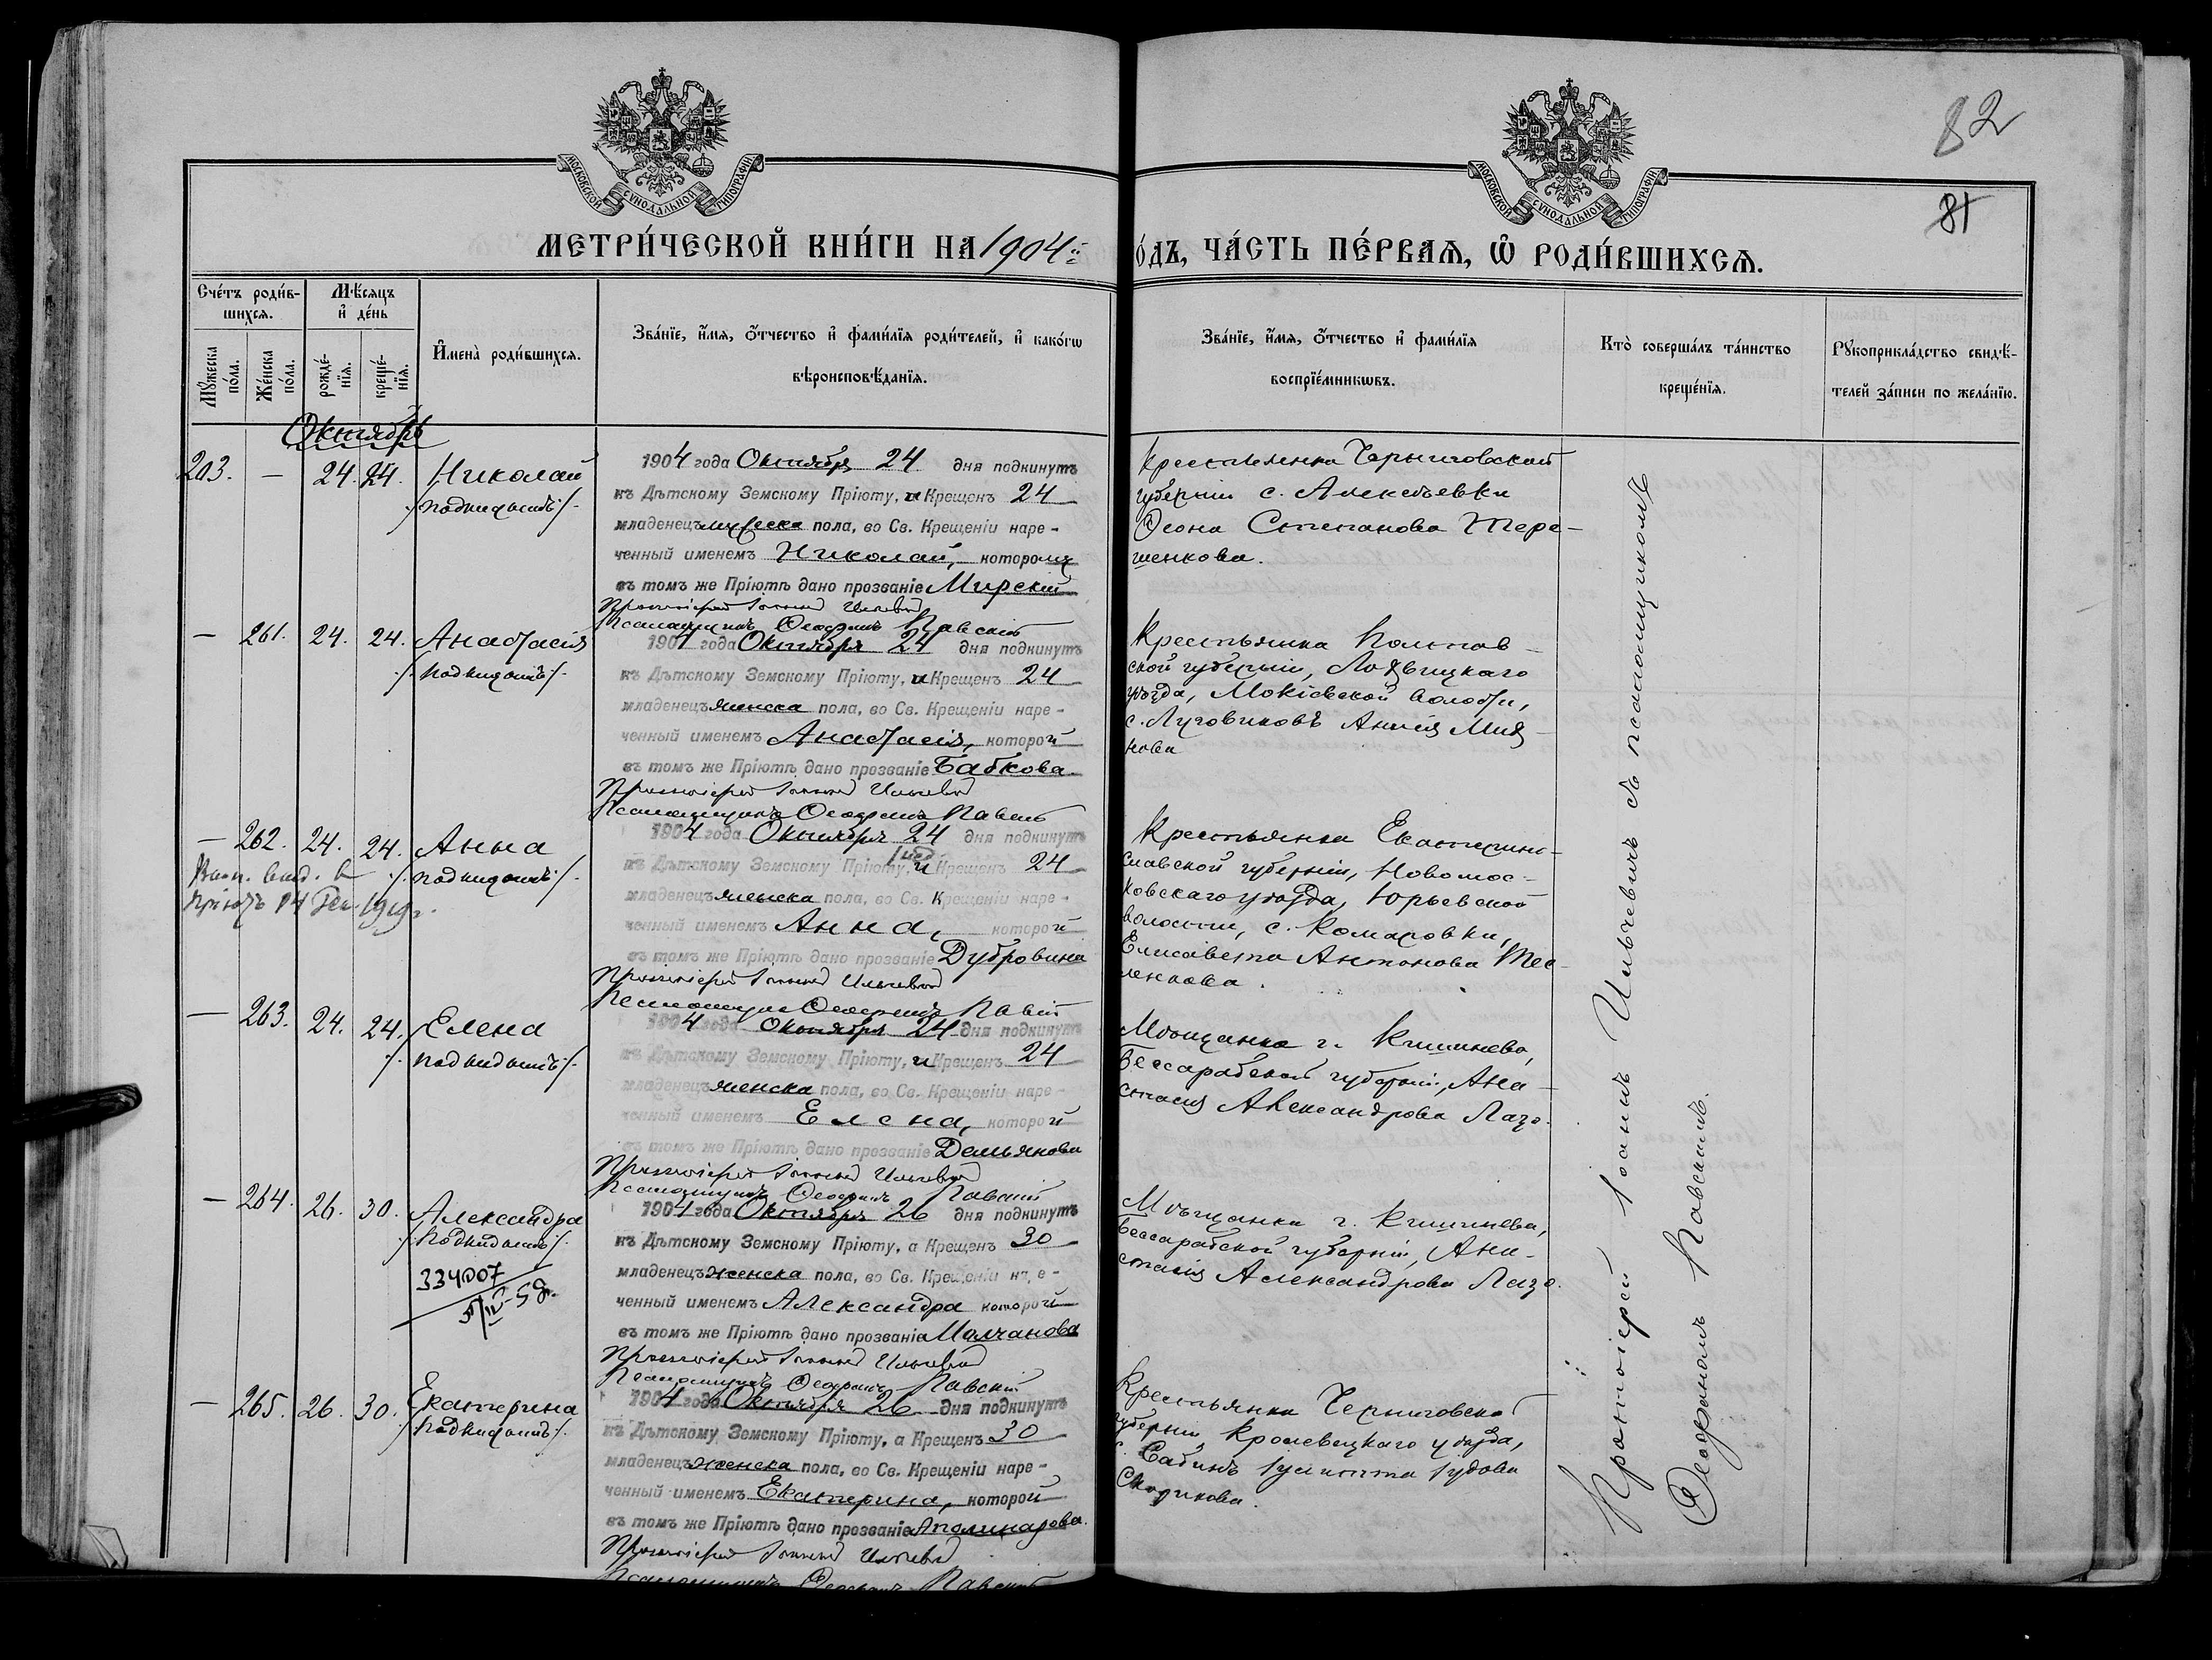 82
81
МОСКОВСКОЙ СУНОДАЛЬНОЙ ТИПОГРАФІИ
МОСКОВСКОЙ СУНОДАЛЬНОЙ ТИПОГРАФІИ
МЕТРИ́ЧЕСКОЙ КНИ́ГИ НА 1904 г.
О́ДЪ, ЧА́СТЬ ПЕ́РВАѦ, Ѡ҆ РОДИ́ВШИХСѦ.
Сче́тъ роди́в-
шихсѧ.
Мѣ́сѧцъ
и҆ де́нь
Мꙋ́жеска
по́ла.
Же́нска
по́ла.
рожде́-
нїѧ.
креще́-
нїѧ.
И҆мена̀ роди́вшихсѧ.
Зва́нїе, и҆́мѧ, ѻ҆́тчество и҆ фами́лїѧ роди́телей, и҆ како́гѡ
вѣроисповѣ́данїѧ.
Зва́нїе, и҆́мѧ, ѻ҆́тчество и҆ фами́лїѧ
воспрїе́мникѡвъ.
Кто̀ соверша́лъ та́инство
креще́нїѧ.
Рꙋкоприкла́дство свидѣ́-
телей за́писи по жела́нїю.
Октябрь
203. — 24. 24. Николай
/. подкидышъ /.
1904 года Октября 24 дня подкинутъ
къ Дѣтскому Земскому Пріюту, и Крещенъ 24
младенецъ мужеска пола, во Св. Крещеніи наре-
ченный именемъ Николай, которому
въ томъ же Пріютѣ дано прозваніе Мирскій
Протоіерей Іоаннъ Ильчевичъ
Псаломщикъ Ѳеофанъ Павскій
Крестьянка Черниговской
губерніи с. Алексѣевки
Степанова Тере-
щенкова.
— 261. 24. 24. Анастасія
/. подкидышъ /.
1904 года Октября 24 дня подкинутъ
къ Дѣтскому Земскому Пріюту, и Крещенъ 24
младенецъ женска пола, во Св. Крещеніи наре-
ченный именемъ Анастасія, которой
въ томъ же Пріютѣ дано прозваніе Бабкова
Протоіерей Іоаннъ Ильчевичъ
Псаломщикъ Ѳеофанъ Павскій
Крестьянка Полтав-
ской губерніи, Лохвицкаго
уѣзда, Мокіевской волости,
с. Луговиковъ
нова
— 262. 24. 24. Анна
/. подкидышъ /.
вып. вид. в
пріютъ 14 1919 г.
1904 года Октября 24 дня подкинутъ
къ Дѣтскому Земскому Пріюту, и Крещенъ 24
младенецъ женска пола, во Св. Крещеніи наре-
ченный именемъ Анна, которой
въ томъ же Пріютѣ дано прозваніе Дубровина
Протоіерей Іоаннъ Ильчевичъ
Псаломщикъ Ѳеофанъ Павскій
Крестьянка Екатерино-
славской губерніи, Новомос-
ковскаго уѣзда, Юрьевской
волости, с. Комаровки,
Елисавета Антонова Тес-
ленкова.
— 263. 24. 24. Елена
/. подкидышъ /.
1904 года Октября 24 дня подкинутъ
къ Дѣтскому Земскому Пріюту, и Крещенъ 24
младенецъ женска пола, во Св. Крещеніи наре-
ченный именемъ Елена, которой
въ томъ же Пріютѣ дано прозваніе Демьянова
Протоіерей Іоаннъ Ильчевичъ
Псаломщикъ Ѳеофанъ Павскій
Мѣщанка г. Кишинева,
Бессарабской губерніи, Ана-
стасія Александрова Лазо.
— 264. 26. 30. Александра
/. Подкидышъ /.
334007
1904 года Октября 26 дня подкинутъ
къ Дѣтскому Земскому Пріюту, а Крещенъ 30
младенецъ женска пола, во Св. Крещеніи наре-
ченный именемъ Александра которой
въ томъ же Пріютѣ дано прозваніе Молчанова
Протоіерей Іоаннъ Ильчевичъ
Псаломщикъ Ѳеофанъ Павскій
Мѣщанка г. Кишинева,
Бессарабской губерніи, Ана-
стасія Александрова Лазо.
— 265. 26. 30. Екатерина
/. Подкидышъ /.
1904 года Октября 26 дня подкинутъ
къ Дѣтскому Земскому Пріюту, а Крещенъ 30
младенецъ женска пола, во Св. Крещеніи наре-
ченный именемъ Екатерина, которой
въ томъ же Пріютѣ дано прозваніе Аполинарова.
Протоіерей Іоаннъ Ильчевичъ
Псаломщикъ Ѳеофанъ Павскій
Крестьянка Черниговской
губерніи Кролевецкаго уѣзда,
Протоіерей Іоаннъ Ильчевичъ съ псаломщикомъ
Ѳеофаномъ Павскимъ.